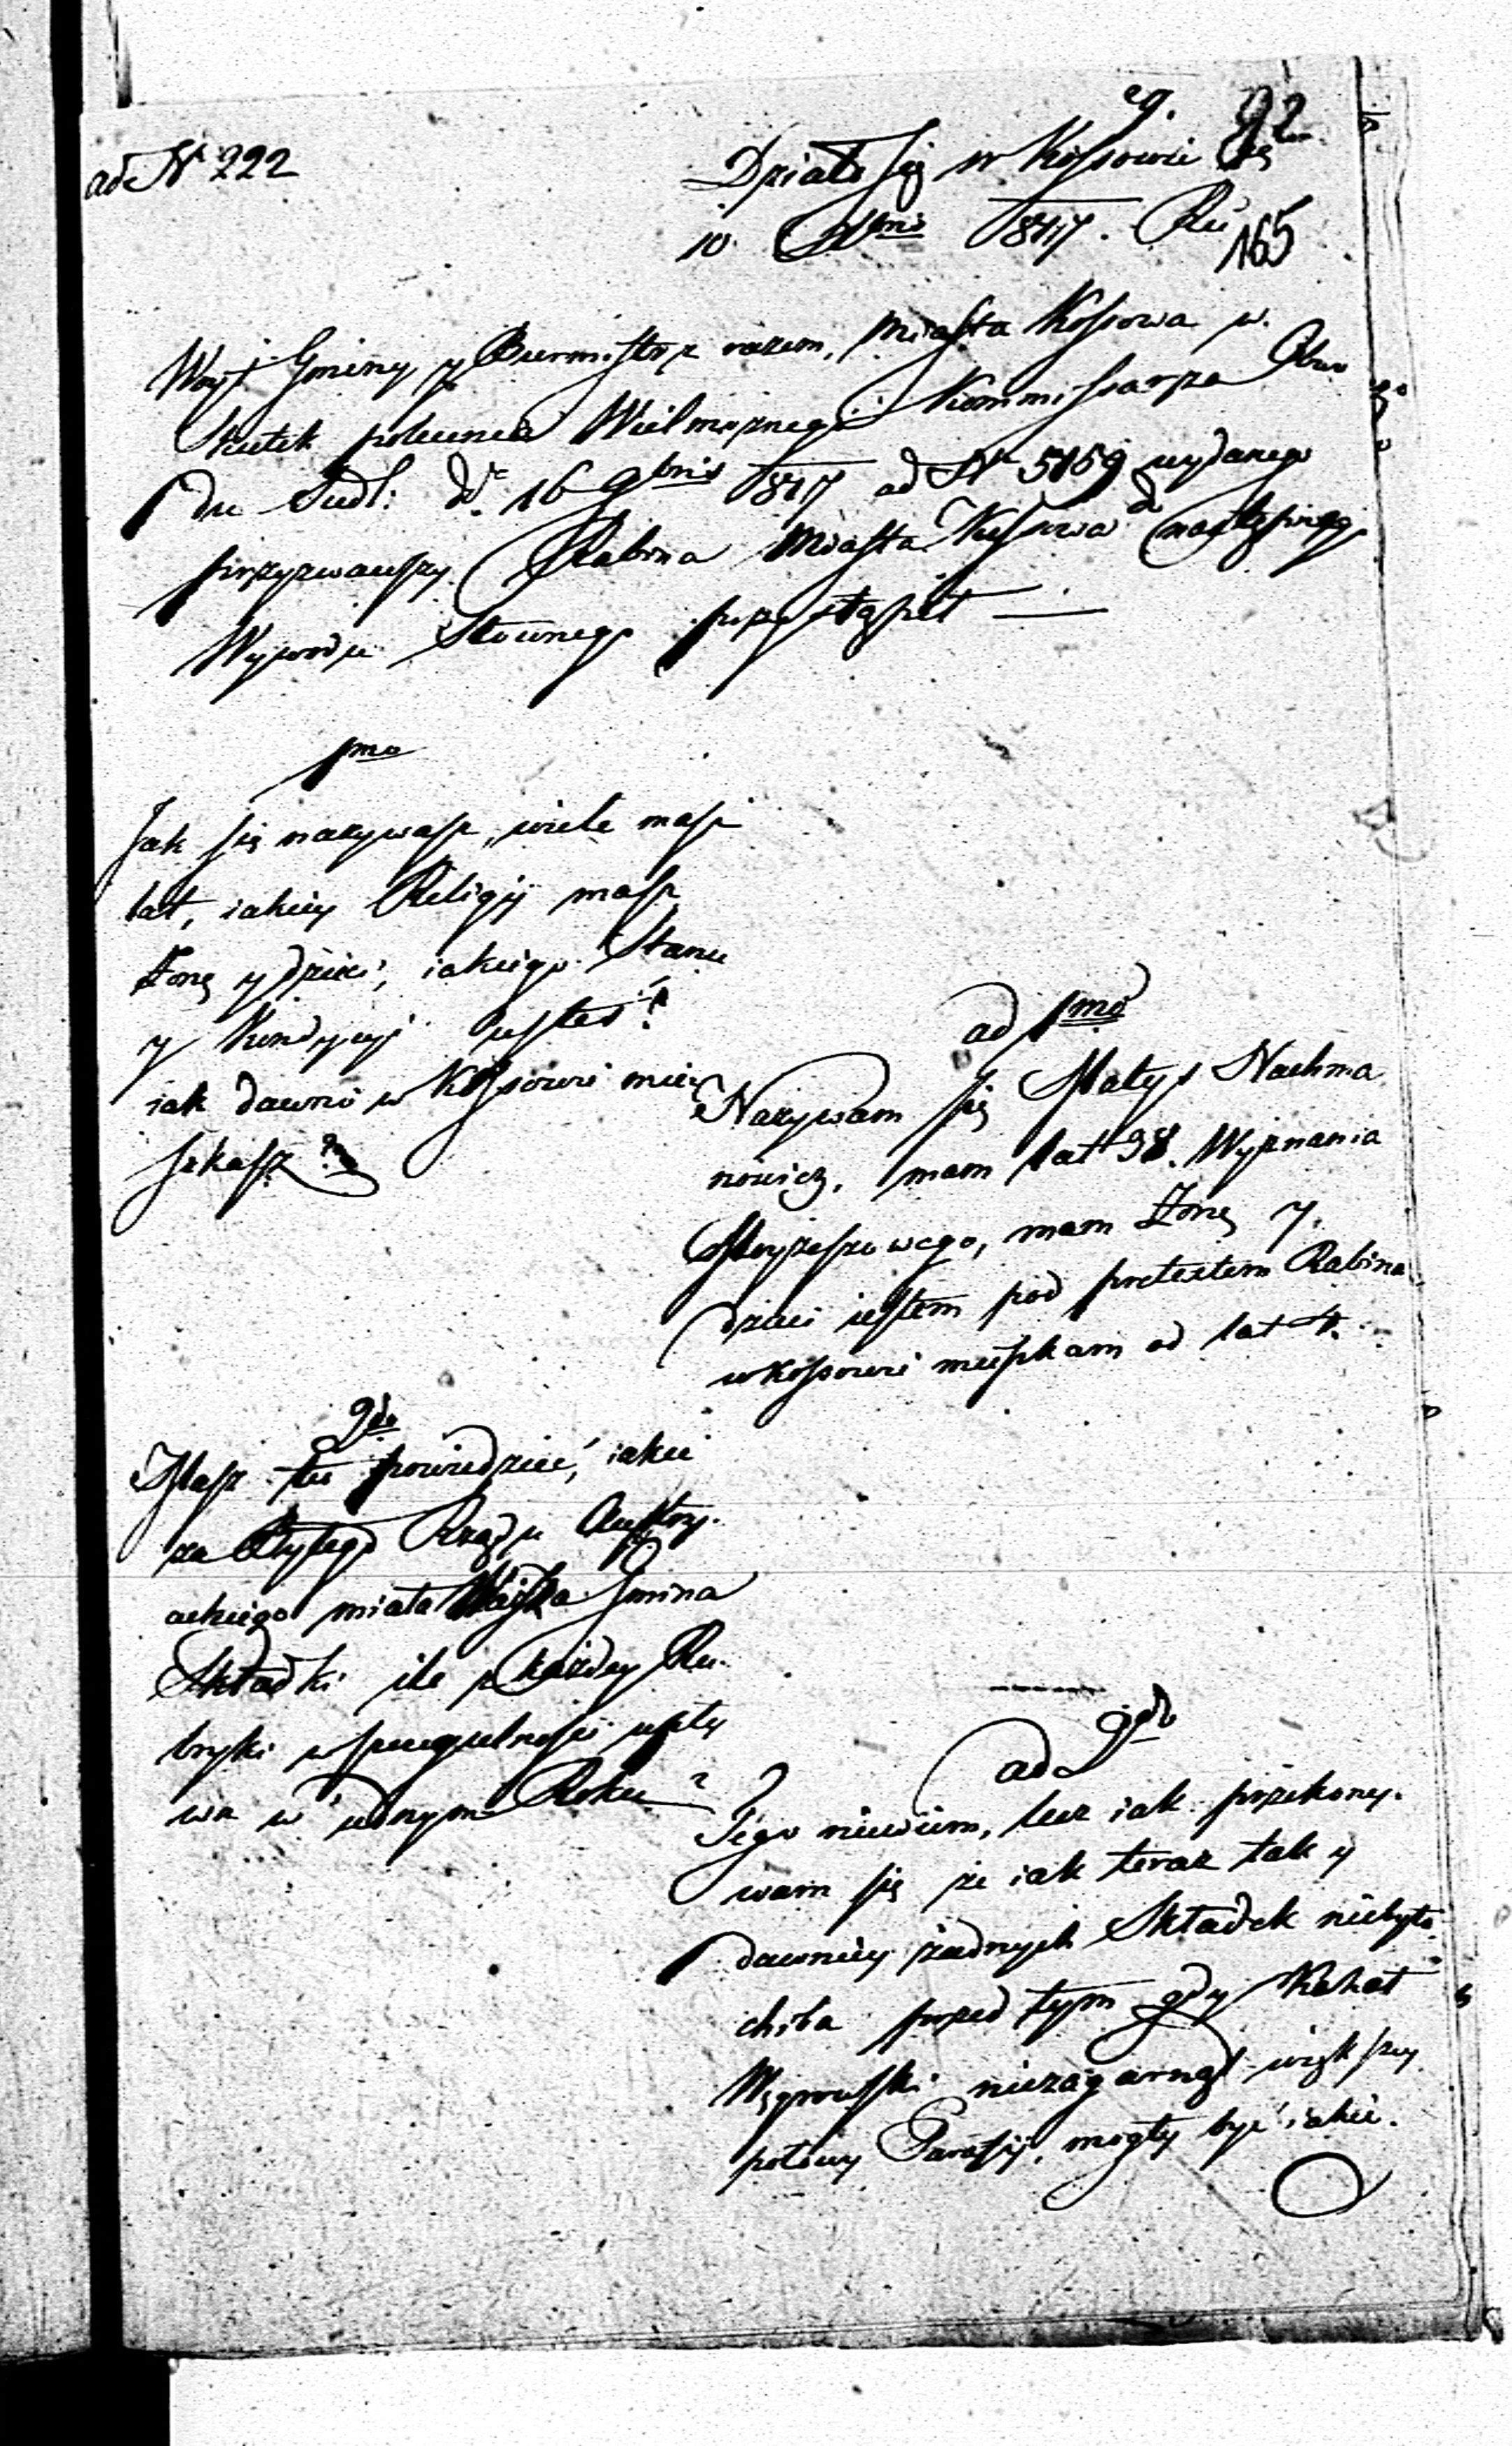 29. 92
ad Nr 222
Działo się w Kossowie dnia
10 Xbris 1817. Ru
165
Woyt Gminy y Burmistrz razem, Miasta Kossowa w
skutek polecenia Wielmożnego Kommissarza Obwo
du Siedl: d. 16 9bris 1817 ad Nr 5159 wydanego
przyzwawszy Rabina Miasta Kossowa do następnego
Wywodu Słownego przystąpił —
1mo
Jak się nazywasz, wiele masz
lat, iakiey Religij masz
Żonę y dzieci, iakiego Stanu
y Kondycyi iesteś?
iak dawno w Kossowie miesz
szkasz?
ad 1mo
Nazywam się Matys Nachma
nowicz, mam lat 38. Wyznania
Moyżeszowego, mam Żonę y
dzieci iestem pod pretextem Rabina
w Kossowie mieszkam od lat 4.
2do
Masz tu powiedzieć, iakie
za byłego Rządu Austry.
ackiego miała Gmina
Składki ile z każdey Ru.
bryki w szczegulności wpły
wa w iednym Roku?
ad 2do
Tego niewiem, lecz iak przekony.
wam się że iak teraz tak y
dawniey żadnych Składek niebyło
chiba przed tym gdy Kahał
Węgrowski niezagarnął większey
połowy Parafij, mogły być iakie.